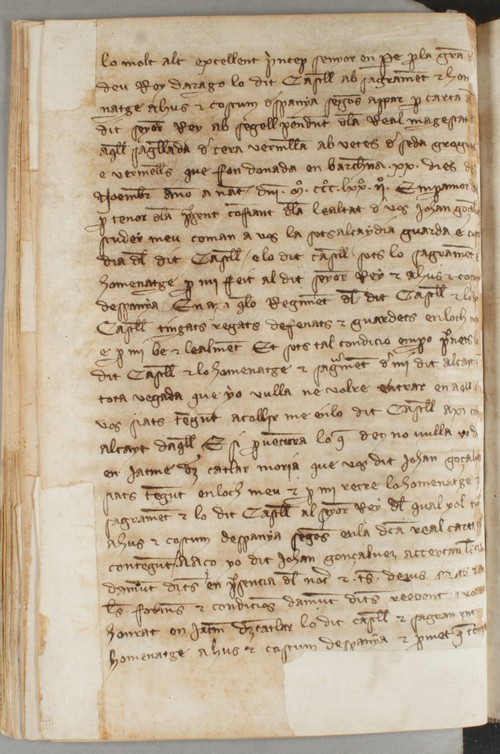 lo molt alt excellent princep senyor en Pe per la gra
deu Rey darago lo dit Castell ab sagrament & hom
natge a hus & costum despanya segons appar per carta
dit senyor Rey ab segell pendent dla Real magestat
aqll sagellada d cera vermella ab vetes d seda grogues
e vermells que fon donada en barchna .xx. dies
Noembr anno a nat dni mo ccc lxxo
per tenor dla present confiant dla lealtat d vos Johan gonça
scuder meu coman a vos la sots alcaydia guarda e
dia dl dit Castell / e lo dit castell sots lo sagrament
homenatge per mi feit al dit senyor Rey & a hus & costum
despanya En axi qlo Regiment dl dit Castell & lo
Castell tingats regats defenats & guardets en loch
e per mi be & lealment Et sots tal condicio empo
dit Castell & lo homenatge & sagrament d mi dit alcayt
tota vegada que yo vulla ne volre entrar en aqll
vos siats tengut acollir me en lo dit Castell axi
alcayt daqll E si per ventura lo q deu no vulla yo
en Jacme catlar moria que vos dit Johan gonçalue
siats tengut en loch meu & per mi retre lo homenatge
sagrament & lo dit Castell al senyor Rey dl qual yol
a hus & costum despanya segons en la dita real carta
contengut / Aaço yo dit Johan gonçaluez acceptan
damunt dits en presencia dl not & ts deius
forms & condicions damunt dits reebent
honrat en Jacme catlar lo dit castell & sagrament
homenatge a hus & costum despanya & promet q